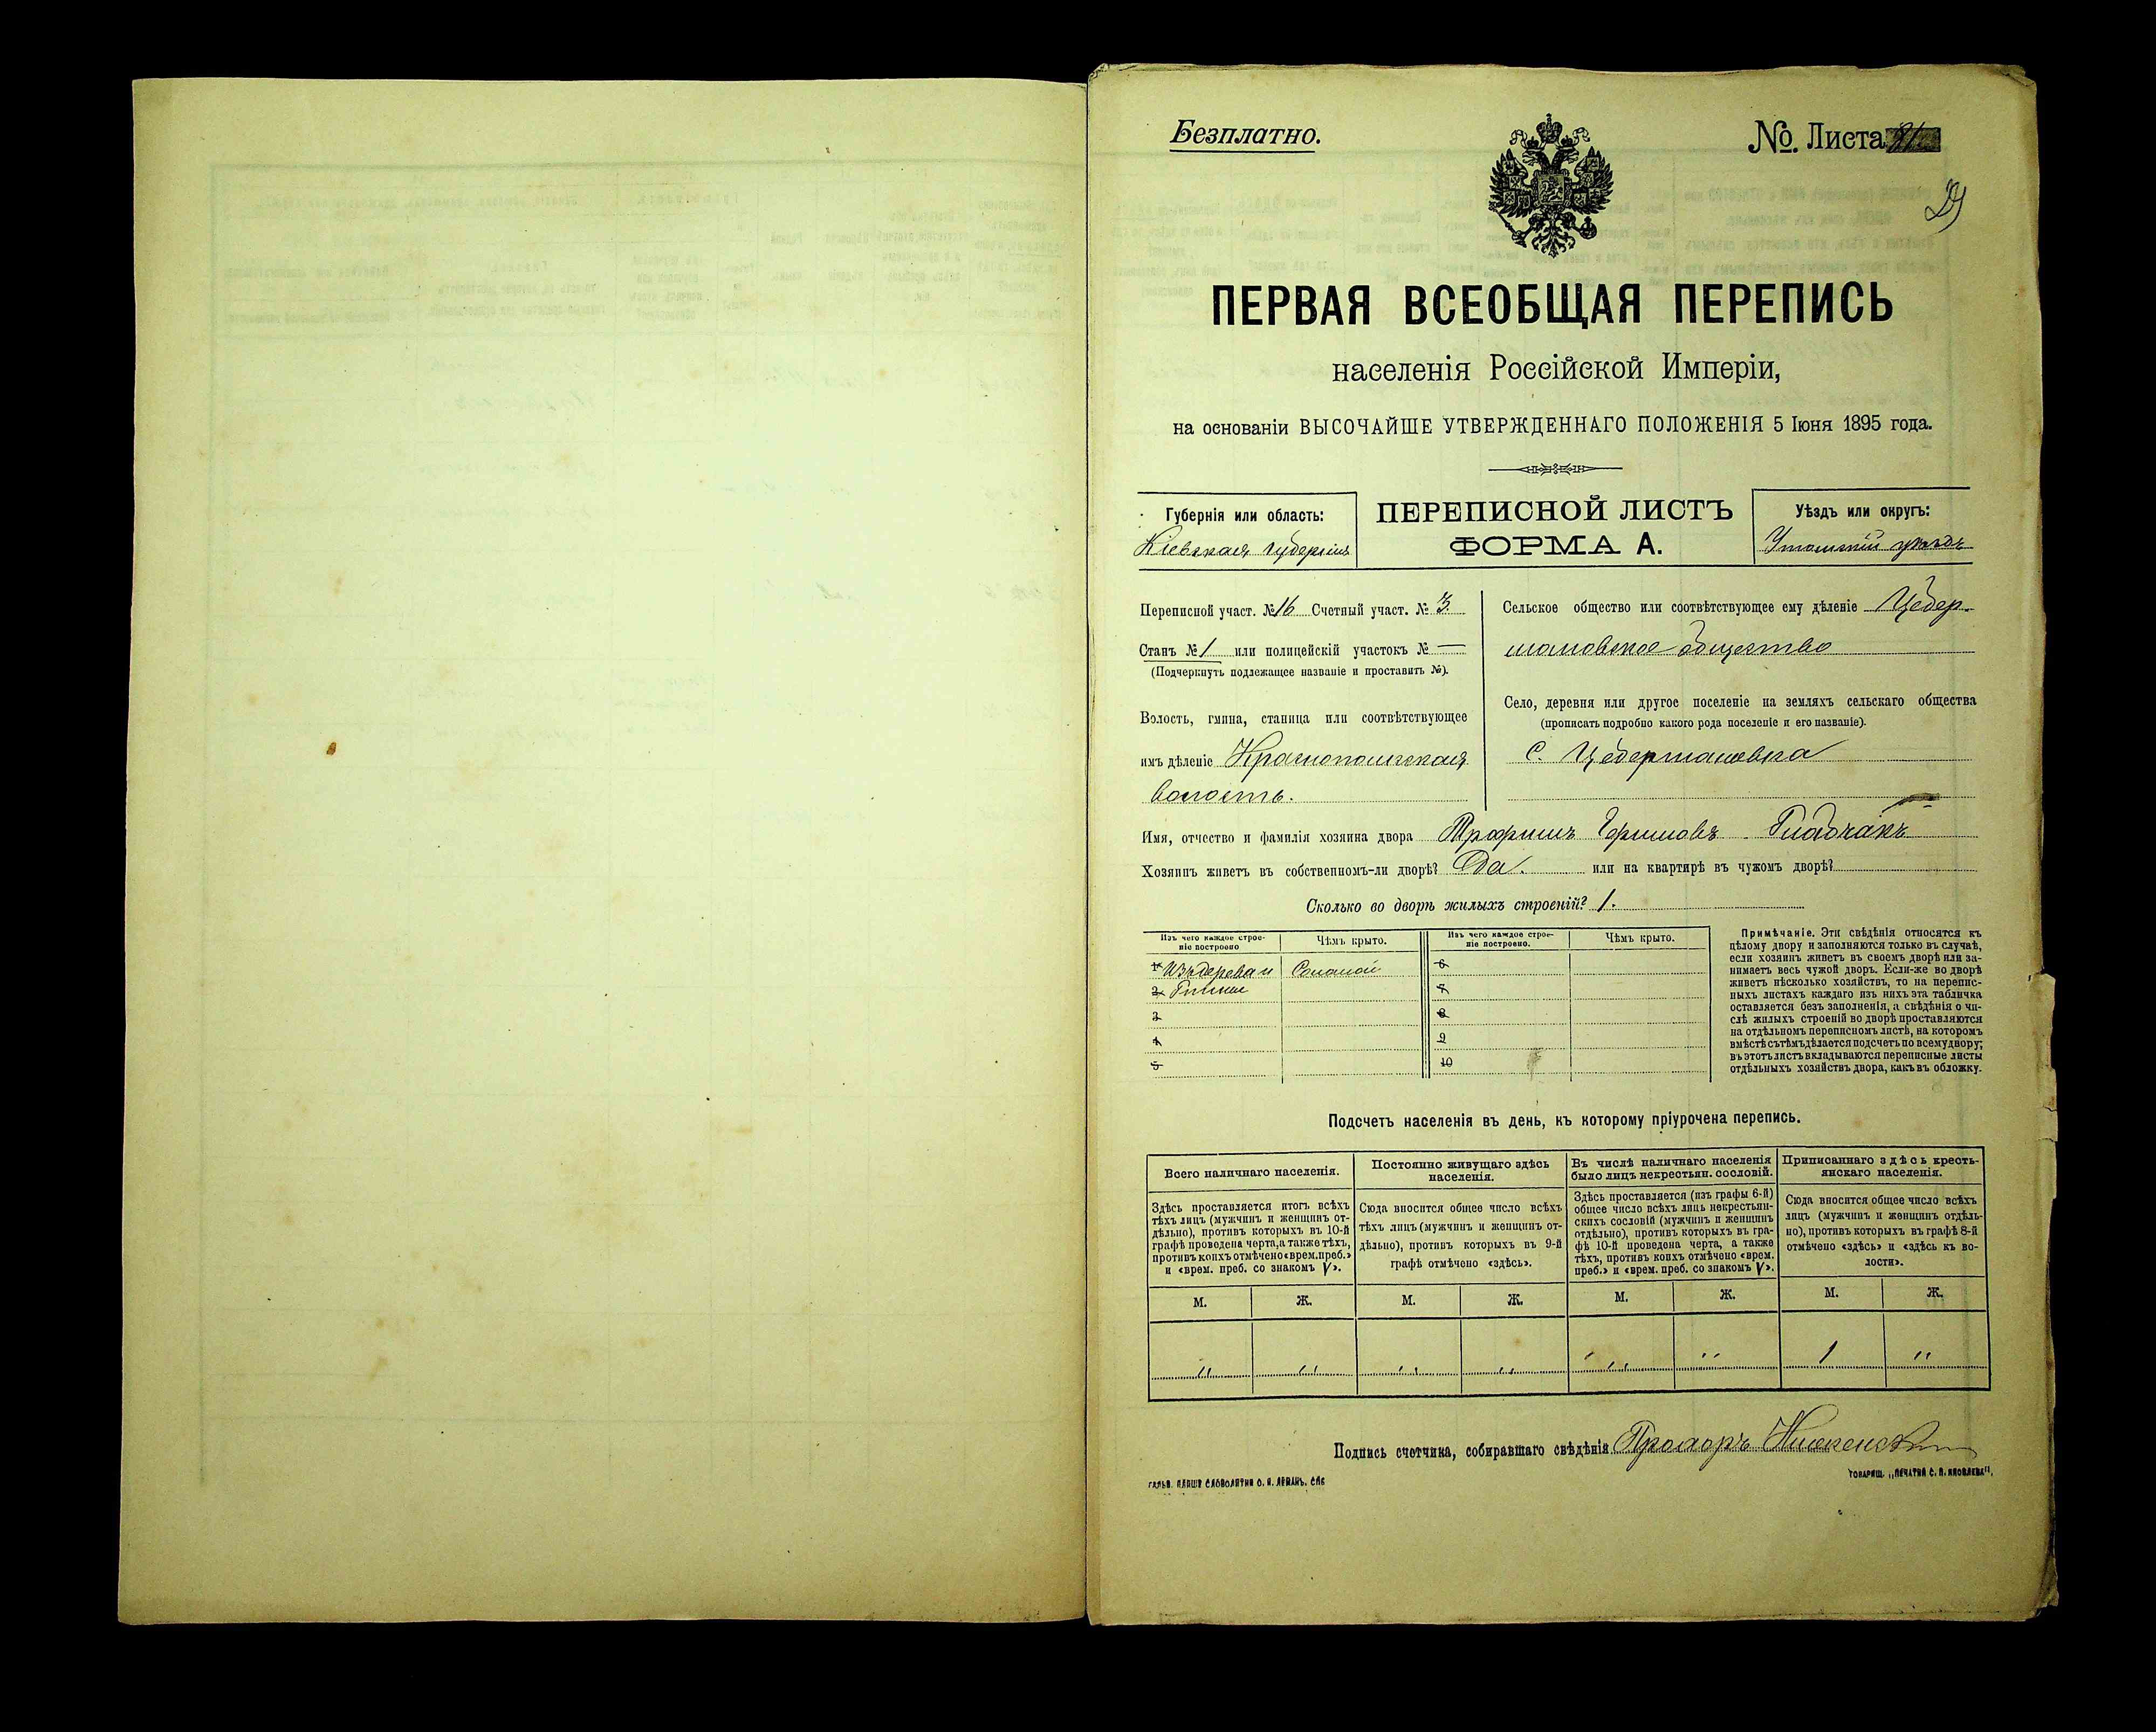 Безплатно.
№. Листа
29
ПЕРВАЯ ВСЕОБЩАЯ ПЕРЕПИСЬ
населенія Россійской Имперіи,
на основаніи ВЫСОЧАЙШЕ УТВЕРЖДЕННАГО ПОЛОЖЕНІЯ 5 Іюня 1895 года.
Губернія или область:
Кіевская губернія
ПЕРЕПИСНОЙ ЛИСТЪ
ФОРМА А.
Уѣздъ или округъ:
Уманскій уѣздъ
Переписной участ. № 16 Счетный участ. № 3
Станъ № 1 или полицейскій участокъ № —
(Подчеркнуть подлежащее названіе и проставить №).
Волость, гмина, станица или соотвѣтствующее
имъ дѣленіе Краснопольская
волость.
Сельское общество или соотвѣтствующее ему дѣленіе Цебер-
мановское общество
Село, деревня или другое поселеніе на земляхъ сельскаго общества
(прописать подробно какого рода поселеніе и его названіе).
С. Цебермановка
Имя, отчество и фамилія хозяина двора Трофимъ
Хозяинъ живетъ въ собственномъ-ли дворѣ? Да. или на квартирѣ въ чужомъ дворѣ?
Сколько во дворѣ жилыхъ строеній? 1.
Изъ чего каждое строе-
ніе построено
Чѣмъ крыто.
1 Изъ дерева и Соломой
2 Глины
3
4
5
Изъ чего каждое строе-
ніе построено.
Чѣмъ крыто.
6
7
8
9
10
Примѣчаніе. Эти свѣдѣнія относятся къ
цѣлому двору и заполняются только въ случаѣ,
если хозяинъ живетъ въ своемъ дворѣ или за-
нимаетъ весь чужой дворъ. Если-же во дворѣ
живетъ нѣсколько хозяйствъ, то на перепис-
ныхъ листахъ каждаго изъ нихъ эта табличка
оставляется безъ заполненія, а свѣдѣнія о чи-
слѣ жилыхъ строеній во дворѣ проставляются
на отдѣльномъ переписномъ листѣ, на которомъ
вмѣстѣ съ тѣмъ дѣлается подсчетъ по всему двору;
въ этотъ листъ вкладываются переписные листы
отдѣльныхъ хозяйствъ двора, какъ въ обложку.
Подсчетъ населенія въ день, къ которому пріурочена перепись.
Всего наличнаго населенія.
Здѣсь проставляется итогъ всѣхъ
тѣхъ лицъ (мужчинъ и женщинъ от-
дѣльно), противъ которыхъ въ 10-й
графѣ проведена черта, а также тѣхъ,
противъ коихъ отмѣчено «врем. преб.»
и «врем. преб. со знакомъ V».
Постоянно живущаго здѣсь
населенія.
Сюда вносится общее число всѣхъ
тѣхъ лицъ (мужчинъ и женщинъ от-
дѣльно), противъ которыхъ въ 9-й
графѣ отмѣчено «здѣсь».
Въ числѣ наличнаго населенія
было лицъ некрестьян. сословій.
Здѣсь проставляется (изъ графы 6-й)
общее число всѣхъ лицъ некрестьян-
скихъ сословій (мужчинъ и женщинъ
отдѣльно), противъ которыхъ въ гра-
фѣ 10-й проведена черта, а также
тѣхъ, противъ коихъ отмѣчено «врем.
преб.» и «врем. преб. со знакомъ V».
Приписаннаго здѣсь кресть-
янскаго населенія.
Сюда вносится общее число всѣхъ
лицъ (мужчинъ и женщинъ отдѣль-
но), противъ которыхъ въ графѣ 8-й
отмѣчено «здѣсь» и «здѣсь къ во-
лости».
М. Ж. М. Ж. М. Ж. М. Ж.
" " " " " " 1 "
Подпись счетчика, собиравшаго свѣдѣнія Прохоръ
ГАЛЬВ. КЛИШЕ СЛОВОЛИТНИ О. И. ЛЕМАНЪ. СПБ
ТОВАРИЩ. „ПЕЧАТНЯ С. П. ЯКОВЛЕВА".